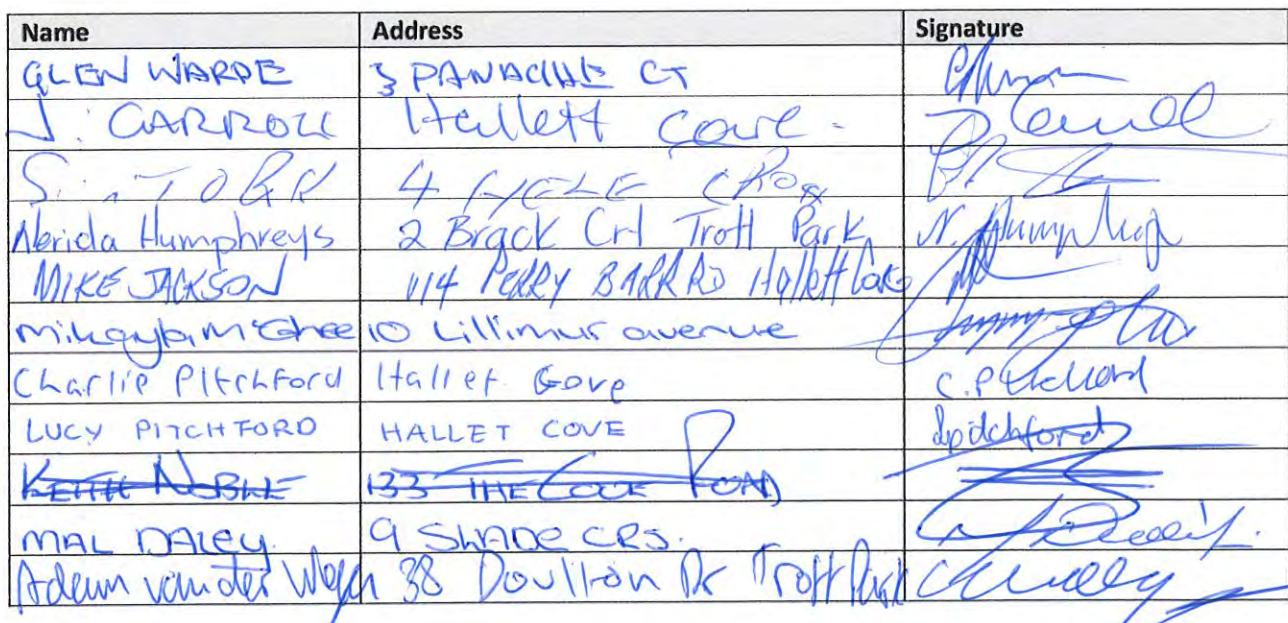 Name Address Signature
GLEN WARDE 3 PANACHE CT
J. CARROLL Hallett Cove.
S. 4
Nerida Humphreys 2 Brack Crt Trott Park N. Humphreys
MIKE JACKSON 114 PERRY BARR RD Hallett Cove
Mikayla McGhee 10 Lillimur avenue
Charlie Pitchford Hallet Cove C. Pitchford
LUCY PITCHFORD HALLET COVE Lpitchford
KEITH NOBLE 133 THE COVE ROAD
MAL DALEY. 9 SHADE CRS.
Adam van der 38 Doulton Dr Trott Park